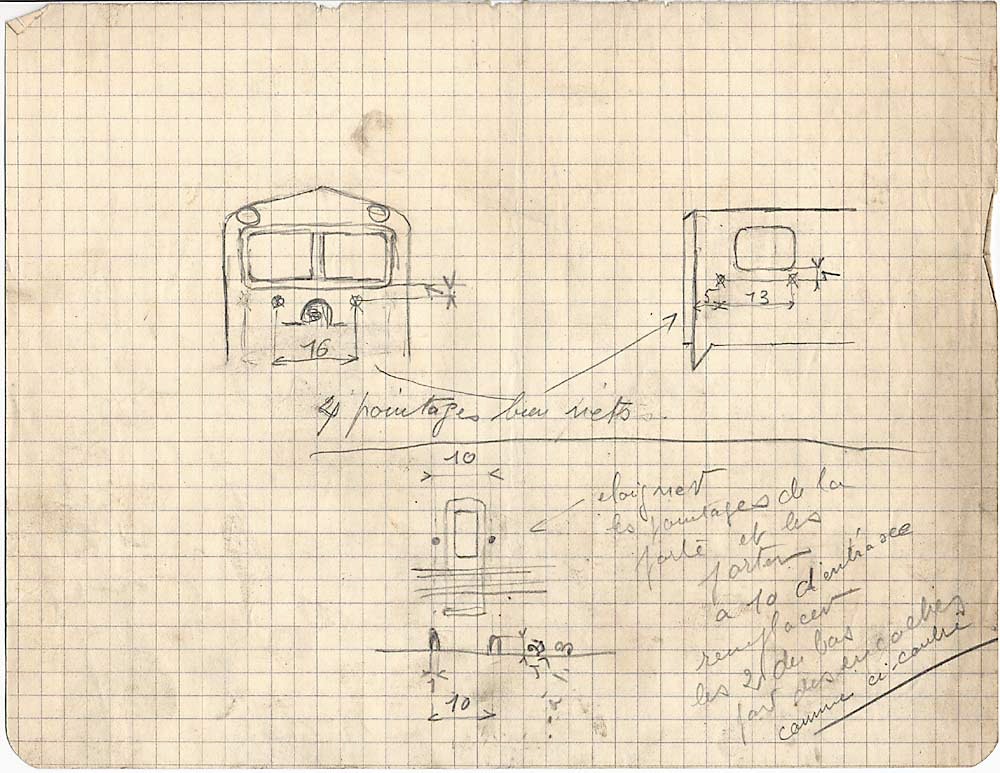 16
5
13
4 pointages bien nets.
10
éloigner
les pointages de la
porte et les
porter
à 10 d'entr'axe
remplacer
les 2 du bas
par des encoches
comme ci-contre
1
10